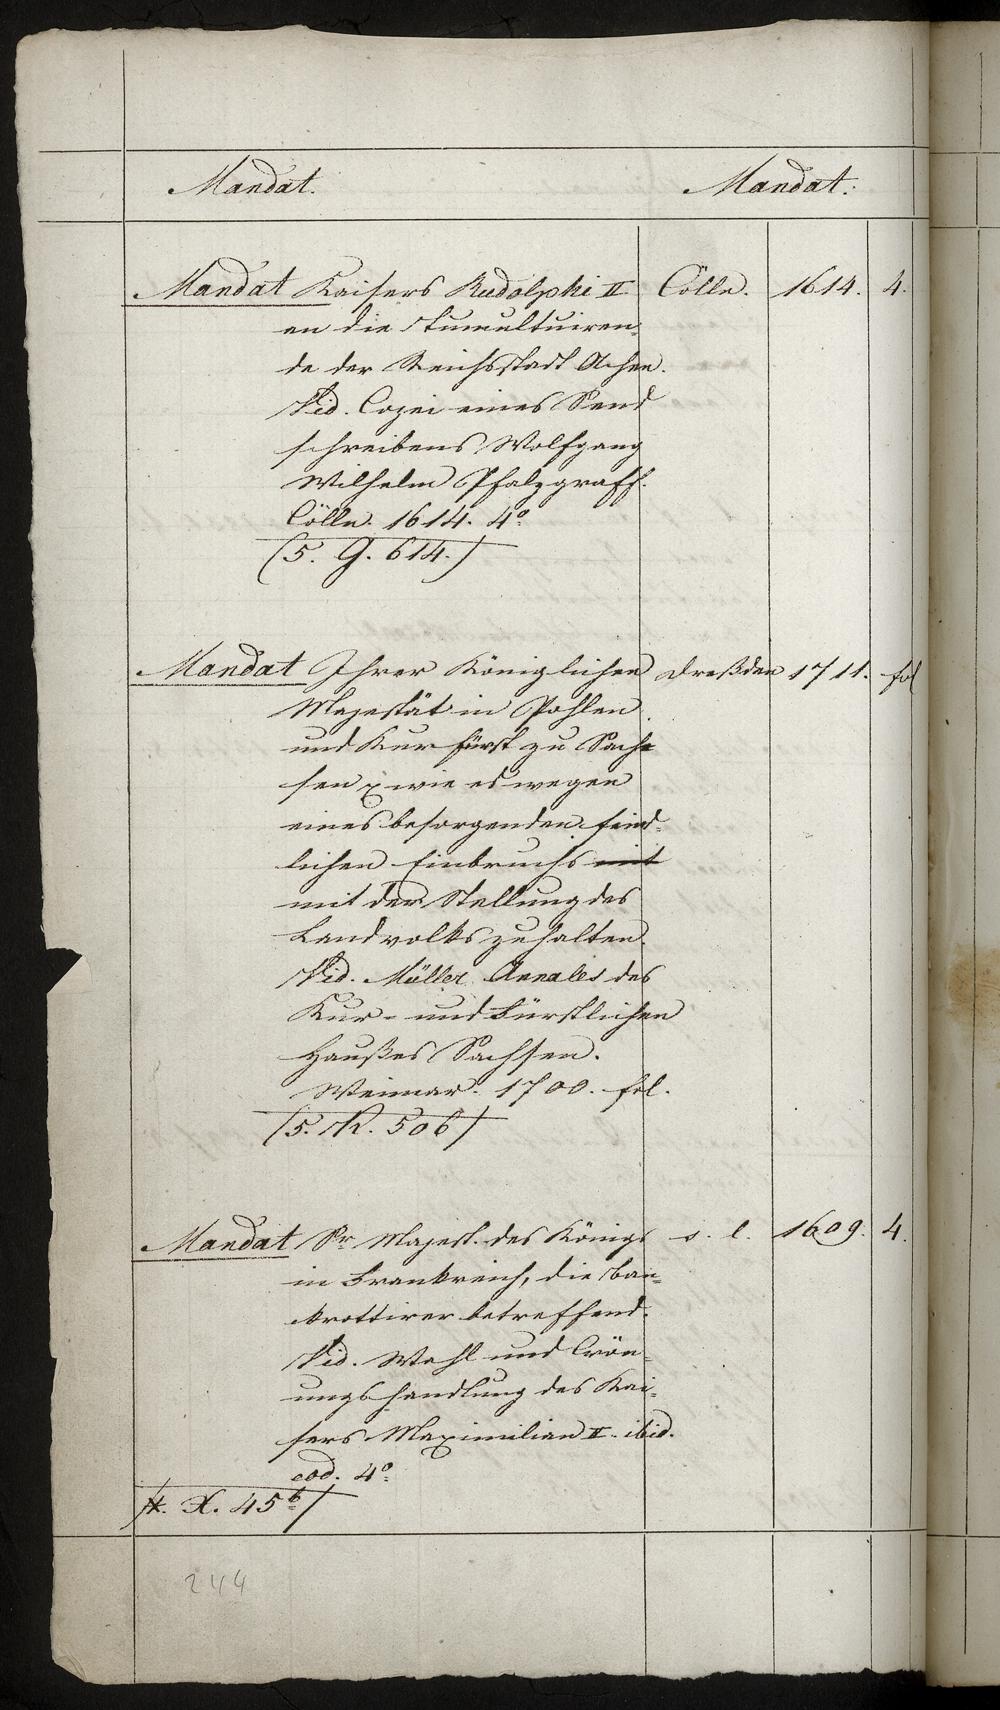 Mandat. Mandat.
Mandat Kaisers Rudolphi II Cölln. 1614. 4.
an die Tumultuiren-
de der Reichsstadt Achen.
Vid. Copei eines Send
schreibens Wolfgang
Wilhelm Pfalzgraff.
Cölln. 1614. 4°.
(5. G. 614.)
Mandat Ihrer Königlichen Dreßden 1711. fol
Majestät in Pohlen
und Kurfürst zu Sach-
sen wie es wegen
eines besorgenden feind-
lichen Einbruchs mit
mit der Stellung des
Landvolks zuhalten.
Vid. Müller Annales des
Kur- und Fürstlichen
Haußes Sachsen.
Weimar. 1700. fol.
(5. R. 506)
Mandat Sr. Majest. des Königs s. l. 1609. 4.
in Frankreich, die ban-
krottirer betreffend.
Vid. Wahl und Crön-
ungshandlung des Kai-
sers Maximilian II. ibid.
eod. 4°.
X. 45b)
244